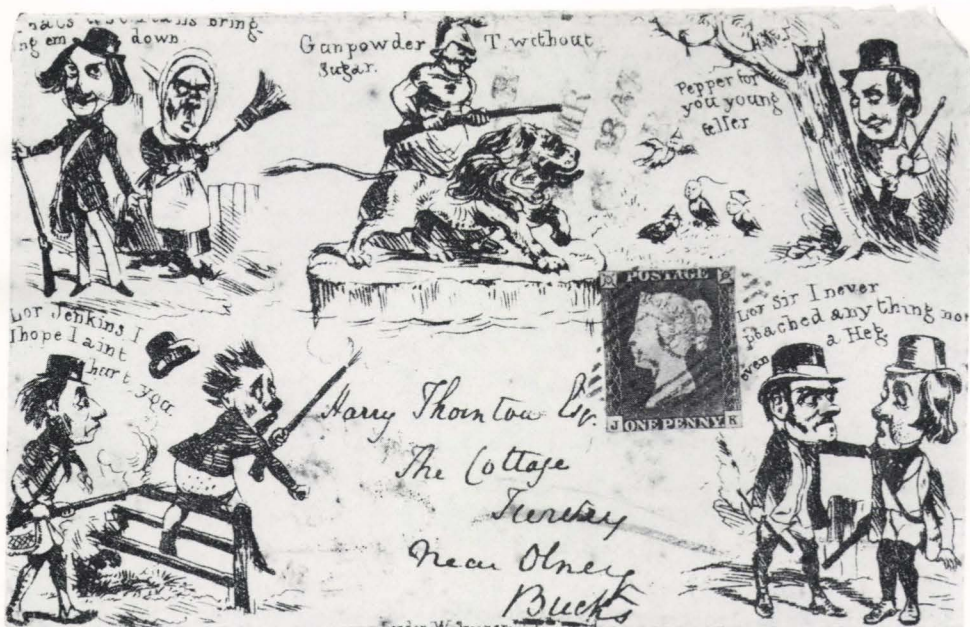 bring-
ng em down.
Gunpowder T. without
Sugar.
Pepper for
you young
feller
POSTAGE
J ONE PENNY K
Lor Jenkins I
Ihope I aint
hurt you.
Lor Sir I never
poached any thing not
even a Heg
Harry Thornton Esq.
The Cottage
Turvey
Near Olney
Bucks